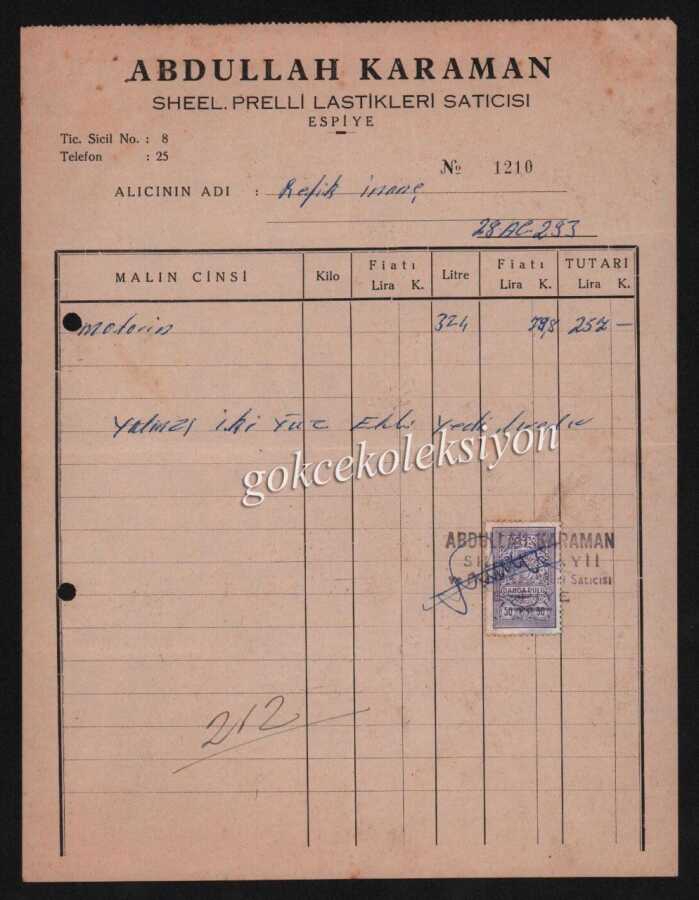 ABDULLAH KARAMAN
SHEEL. PRELLİ LASTİKLERİ SATICISI
ESPİYE
Tic. Sicil No. : 8
Telefon : 25
№ 1210
ALICININ ADI : Refik inanç
MALIN CİNSİ Kilo Fiatı Lira K. Litre Fiatı Lira K. TUTARI Lira K.
motorin 324 257 —
Yalnız iki Yüz Elli Yedi
gokcekoleksiyon
ABDULLAH KARAMAN
Satıcısı
DAMGA PULU
212